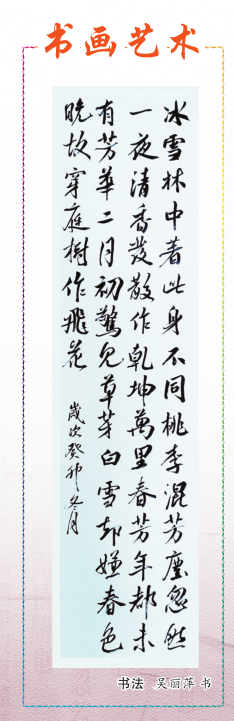 书画艺术
冰雪林中著此身不同桃李混芳尘忽然
一夜清香发散作乾坤万里春芳年都未
有芳华二月初惊见草芽白雪却嫌春色
晚故穿庭树作飞花
岁次癸卯冬月
书法 吴丽萍 书